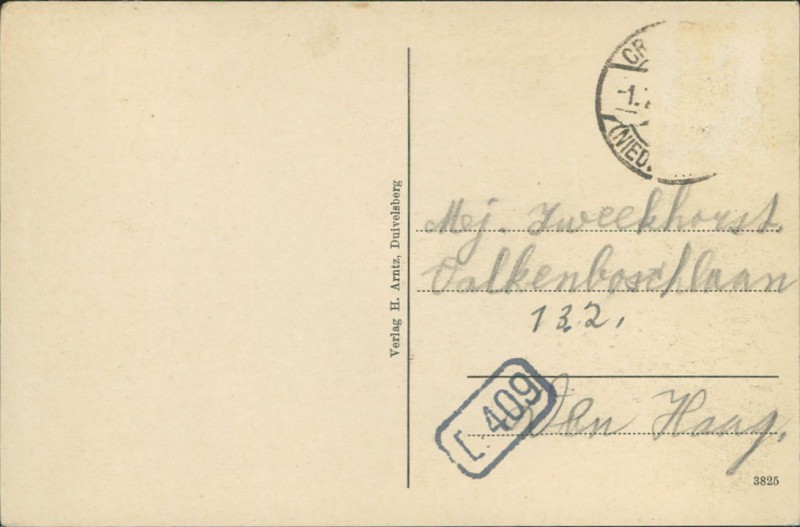 CR
-1.
(NIED.
Verlag H. Arntz, Duivelsberg
Mej. Zweekhorst.
Valkenboschlaan
132.
[. 409
Den Haag.
3825